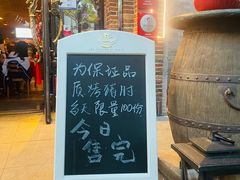 为保证品
质烤猪肘
每天限量100份
今日
售完